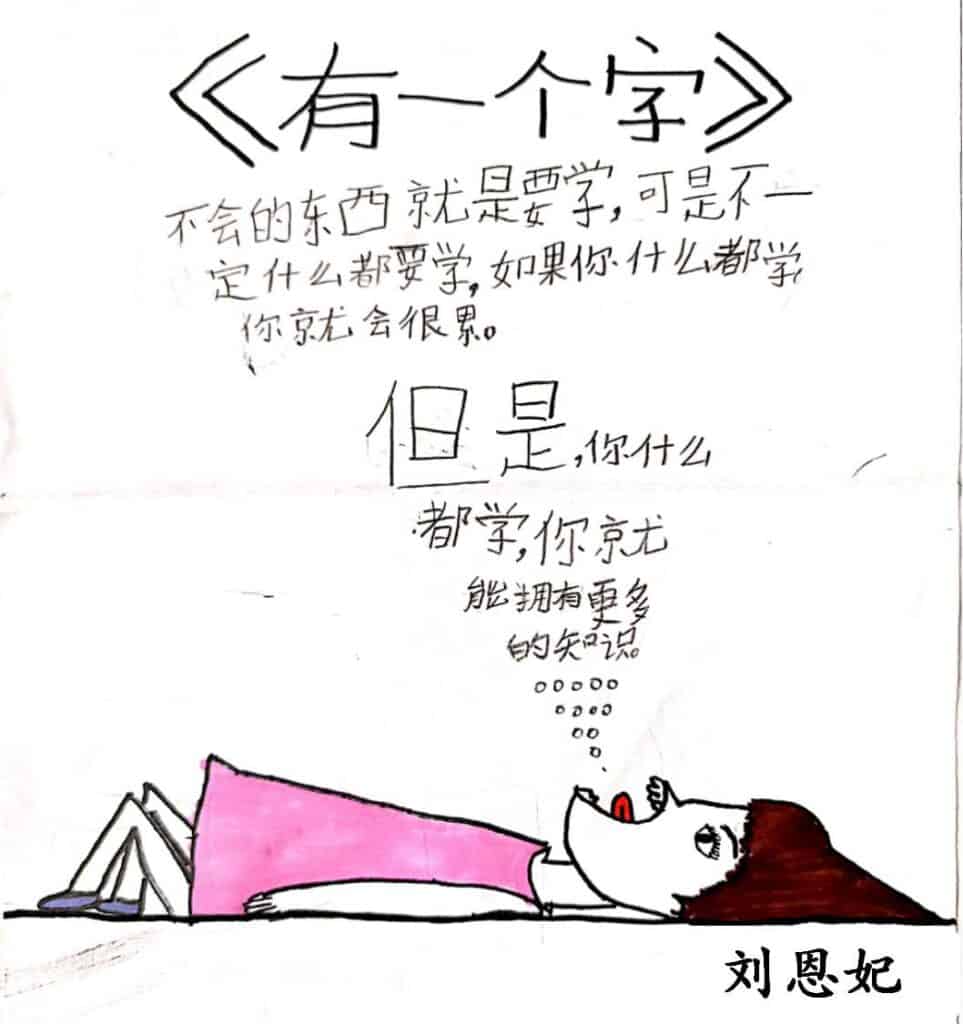 《有一个字》
不会的东西就是要学,可是不一
定什么都要学,如果你什么都学,
你就会很累。
但是,你什么
都学,你就
能拥有更多
的知识。
刘恩妃